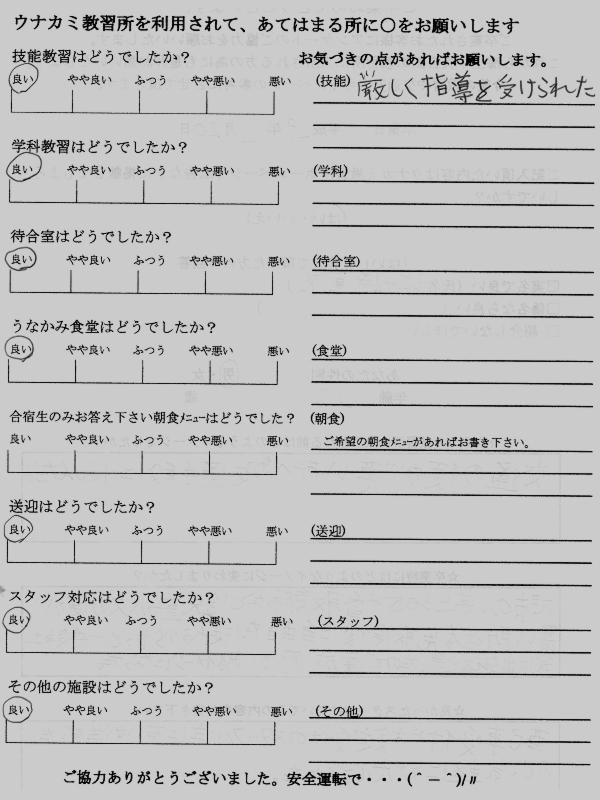 ウナカミ教習所を利用されて、あてはまる所に○をお願いします
技能教習はどうでしたか？
お気づきの点があればお願いします。
良い やや良い ふつう やや悪い 悪い
(技能) 厳しく指導を受けられた
学科教習はどうでしたか？
良い やや良い ふつう やや悪い 悪い
(学科)
待合室はどうでしたか？
良い やや良い ふつう やや悪い 悪い
(待合室)
うなかみ食堂はどうでしたか？
良い やや良い ふつう やや悪い 悪い
(食堂)
合宿生のみお答え下さい朝食ﾒﾆｭｰはどうでしたか？
(朝食)
良い やや良い ふつう やや悪い 悪い
ご希望の朝食ﾒﾆｭｰがあればお書き下さい。
送迎はどうでしたか？
良い やや良い ふつう やや悪い 悪い
(送迎)
スタッフ対応はどうでしたか？
良い やや良い ふつう やや悪い 悪い
(スタッフ)
その他の施設はどうでしたか？
良い やや良い ふつう やや悪い 悪い
(その他)
ご協力ありがとうございました。安全運転で・・・(＾－＾)/〃